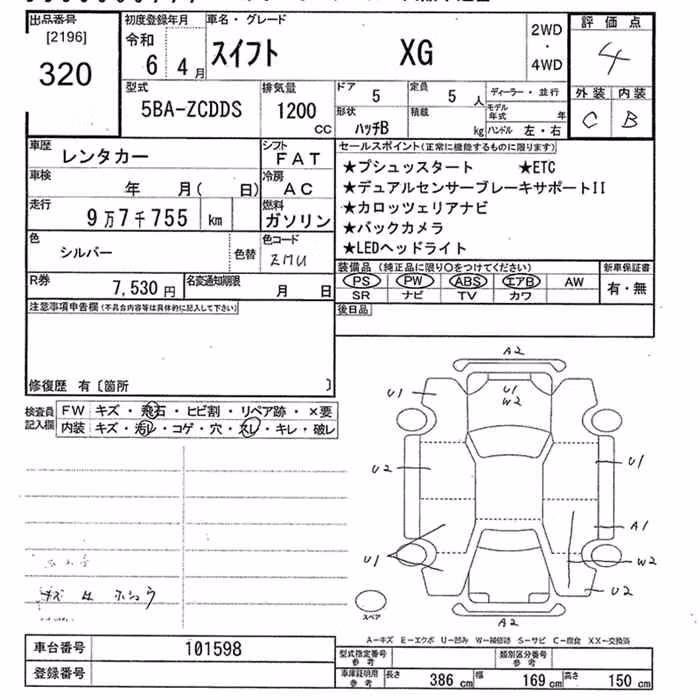 出品番号
[2196]
320
初度登録年月
令和
6 4月
車名・グレード
スイフト XG
2WD
・
4WD
評価点
4
外装 内装
C B
型式
5BA-ZCDDS
排気量
1200
CC
ドア 5
定員 5 人
ディーラー・並行
形状 ハッチB
積載 kg
モデル年式 年
ハンドル 左・右
車歴 レンタカー
シフト FAT
車検 年 月( 日)
冷房 AC
走行 9万7千755 km
燃料 ガソリン
色 シルバー 色替
色コード ZMU
R券 7,530円
名変通知期限 月 日
セールスポイント(正常に機能するものに限ります)
★プシュッスタート ★ETC
★デュアルセンサーブレーキサポートII
★カロッツェリアナビ
★バックカメラ
★LEDヘッドライト
装備品(純正品に限り〇をつけてください)
PS PW ABS エアB AW
SR ナビ TV カワ
新車保証書
有・無
後日品
注意事項申告欄(不具合内容等は具体的に記入して下さい)
修復歴 有〔箇所 〕
検査員記入欄
FW キズ・飛石・ヒビ割・リペア跡・×要
内装 キズ・汚レ・コゲ・穴・スレ・キレ・破レ
A2
U1
U1
W2
U2
U1
A1
U1
W2
U2
A2
スペア
A-キズ E-エクボ U-凹み W-補修跡 S-サビ C-腐食 XX-交換済
車台番号 101598
登録番号
型式指定番号
参考
類別区分番号
参考
車庫証明用
参考
長さ 386 cm
幅 169 cm
高さ 150 cm